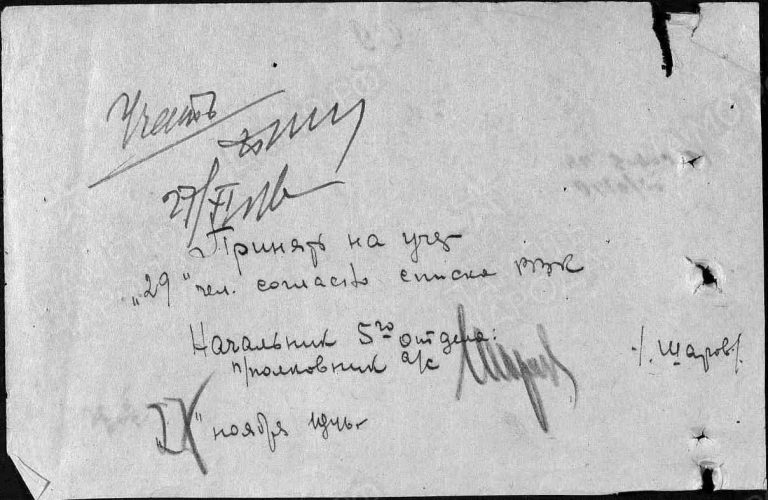 Учесть
27/XI
Принять на учет
„29" чел. согласно списка РВК
Начальник 5го отдела:
п/полковник а/с /. Шаров /.
ноября